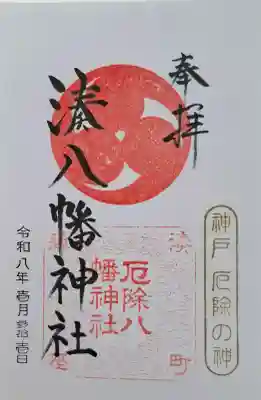 奉拝
神戸厄除の神
湊八幡神社
厄除八
幡神社
令和八年壱月参拾壱日